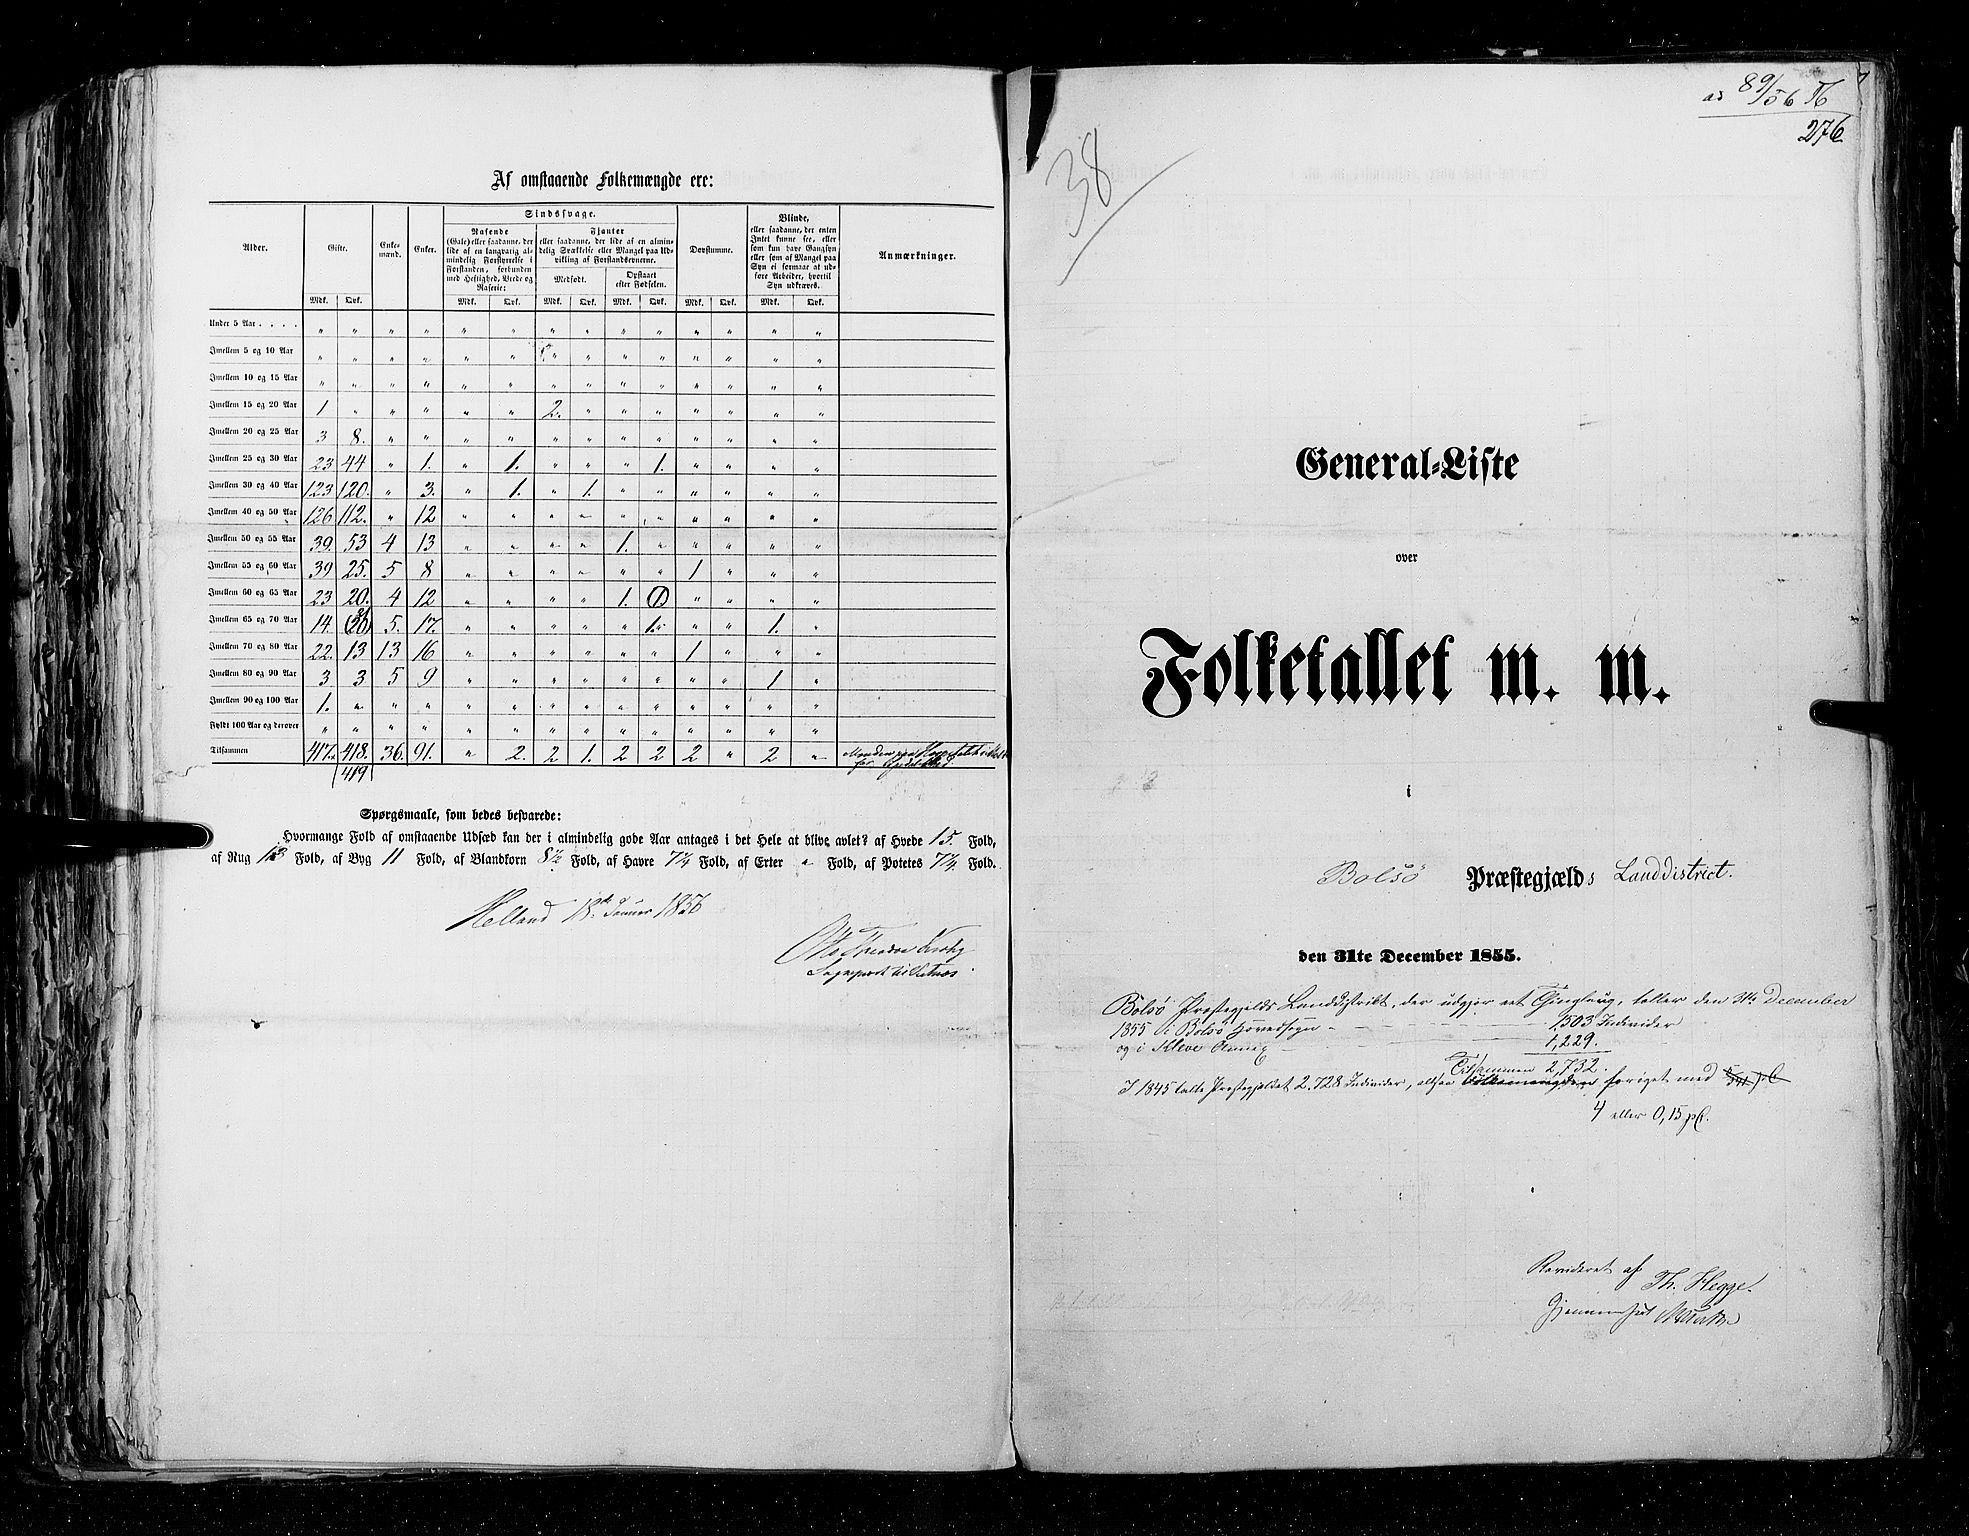 Af omstaaende Folkemængde ere:
Alder. Gifte. Enkemænd. Enker. Sindssvage. Døvstumme. Blinde, eller saadanne, der enten Intet kunne see, eller som kun have Gangsyn eller som af Mangel paa Syn ei formaae at udføre Arbeider, hvortil Syn udkræves. Anmærkninger.
Rasende (Gale) eller saadanne, der lide af en langvarig almindelig Forstyrrelse i Forstanden, forbunden med Heftighed, Vrede og Raserie:
Fjanter eller saadanne, der lide af en almindelig Svækkelse eller Mangel paa Udvikling af Forstandsevnerne.
Medfødt. Opstaaet efter Fødselen.
Mdk. Qvk. Mdk. Qvk. Mdk. Qvk. Mdk. Qvk. Mdk. Qvk. Mdk. Qvk.
Under 5 Aar . . . . " " " " " " " " " " " " " "
Imellem 5 og 10 Aar " " " " " " " " " " " " " "
Imellem 10 og 15 Aar " " " " " " " " " " " " " "
Imellem 15 og 20 Aar 1 " " " " " 2. " " " " " " "
Imellem 20 og 25 Aar 3 8. " " " " " " " " " " " "
Imellem 25 og 30 Aar 23 44 " 1. " 1. " " " 1. " " " "
Imellem 30 og 40 Aar 123 120. " 3. " 1. " 1. " " " " " "
Imellem 40 og 50 Aar 126 112. " 12 " " " " " " " " " "
Imellem 50 og 55 Aar 39. 53 4 13 " " " " 1. " " " " "
Imellem 55 og 60 Aar 39 25. 5 8 " " " " " " 1 " " "
Imellem 60 og 65 Aar 23 20. 4 12 " " " " 1. 1 " " " "
Imellem 65 og 70 Aar 14. (20) 21 5. 17. " " " " " 1. " " 1. "
Imellem 70 og 80 Aar 22. 13 13 16 " " " " " " 1 " " "
Imellem 80 og 90 Aar 3 3 5 9 " " " " " " " " 1 "
Imellem 90 og 100 Aar 1. " " " " " " " " " " " " "
Fyldt 100 Aar og derover " " " " " " " " " " " " " "
Tilsammen 417. 418. 36. 91. " 2. 2 1. 2 2 2 " 2 "
419
Spørgsmaale, som bedes besvarede:
Hvormange Fold af omstaaende Udsæd kan der i almindelig gode Aar antages i det Hele at blive avlet? af Hvede 15. Fold,
af Rug 13 Fold, af Byg 11 Fold, af Blandkorn 8½ Fold, af Havre 7¼ Fold, af Erter " Fold, af Potetes 7¼ Fold.
Helland 18de Januar 1856
ad 89/56
276
38
General-Liste
over
Folketallet m. m.
i
Bolsö Præstegjælds Landdistrict.
den 31te December 1855.
Bolsö Præstegjelds Landdistrikt, der udgjør eet Thinglaug, talte den 31te December
1855 i Bolsö Hovedsogn 1,503 Individer
og i Kleve Annex 1,229.
Tilsammen 2,732.
I 1845 talte Præstegjeldet 2,728 Individer, altsaa Folkemængden forøget med
4 eller 0,15 pC.
Revideret af Th. Hegge.
Gjennemseet